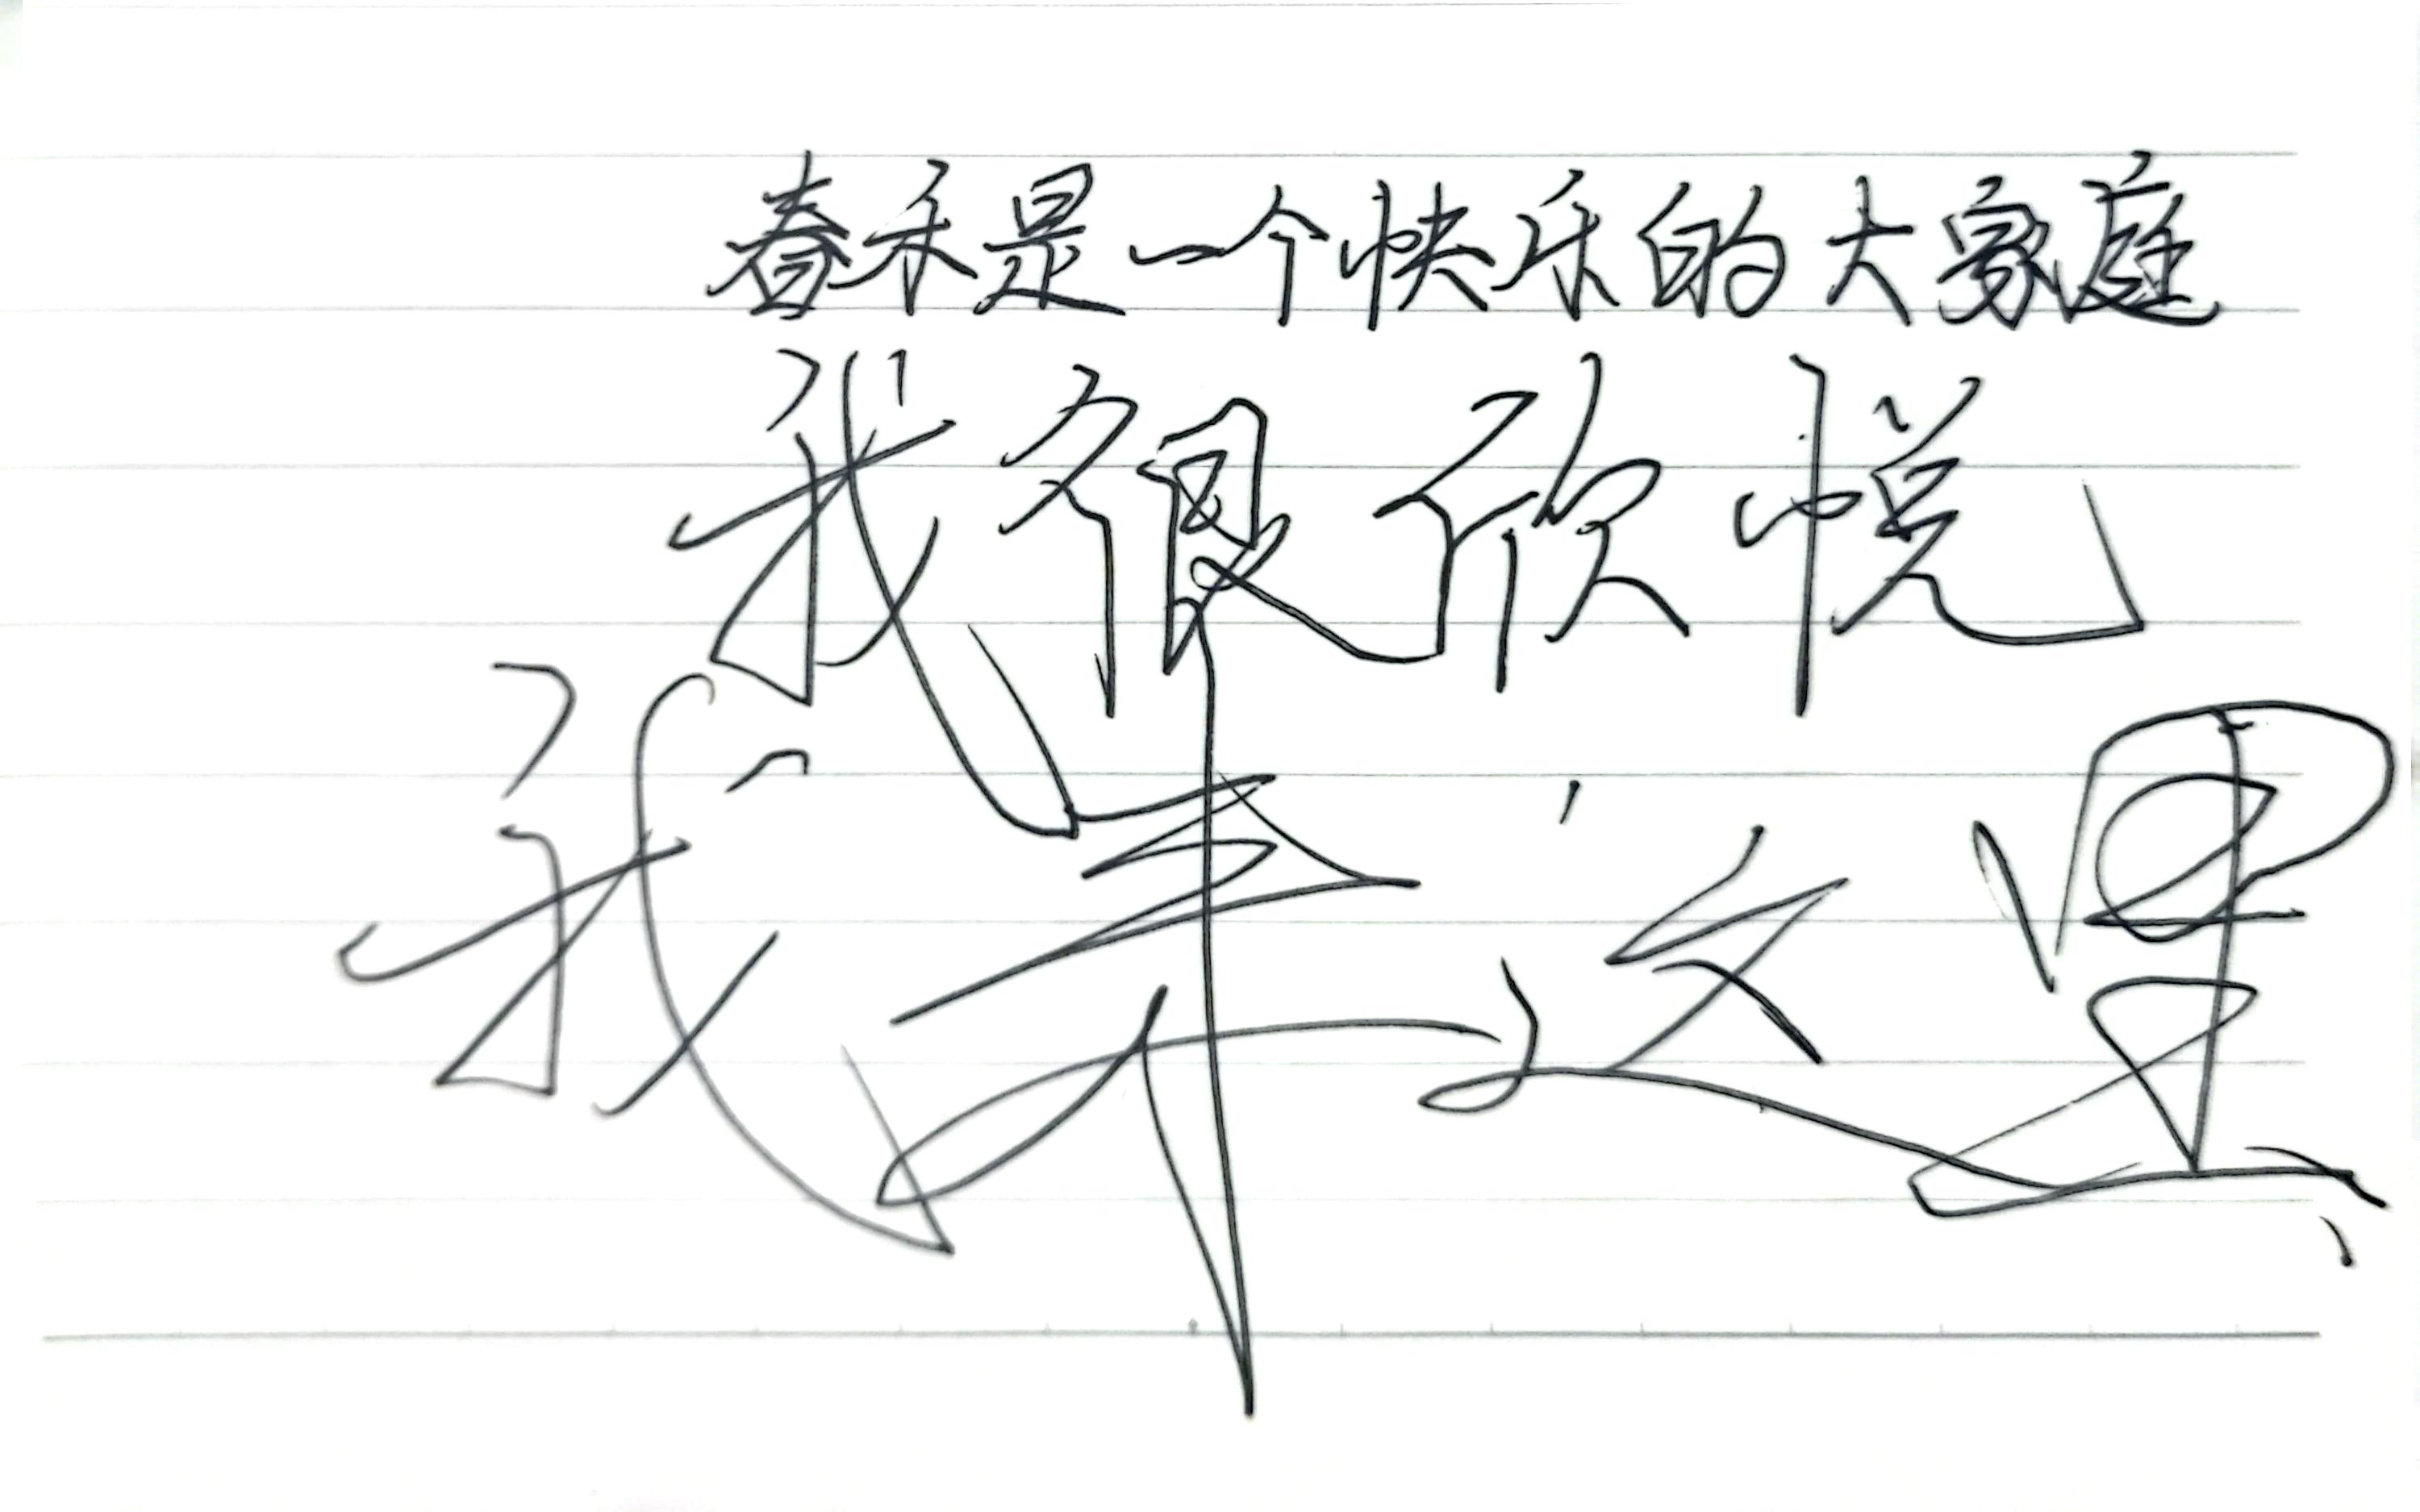 春禾是一个快乐的大家庭
我很欣悦
我来这里